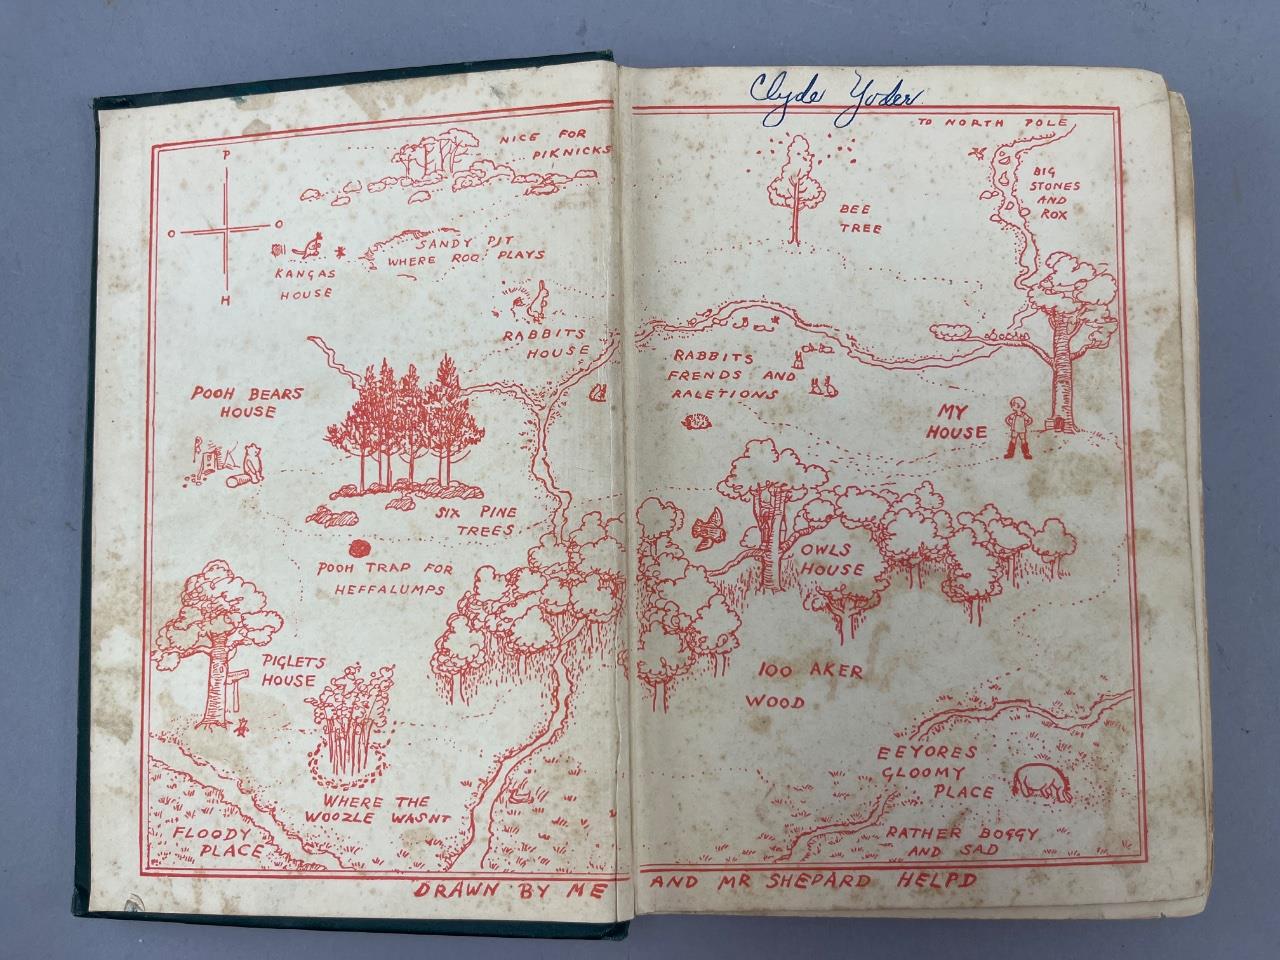 Clyde Yoder
TO NORTH POLE
NICE FOR
PIKNICKS
P
O
O
H
BIG
STONES
AND
ROX
BEE
TREE
SANDY PIT
WHERE ROO PLAYS
KANGAS
HOUSE
RABBITS
HOUSE
RABBITS
FRENDS AND
RALETIONS
POOH BEARS
HOUSE
MY
HOUSE
SIX PINE
TREES
OWLS
HOUSE
POOH TRAP FOR
HEFFALUMPS
PIGLETS
HOUSE
100 AKER
WOOD
EEYORES
GLOOMY
PLACE
WHERE THE
WOOZLE WASNT
FLOODY
PLACE
RATHER BOGGY
AND SAD
DRAWN BY ME AND MR SHEPARD HELPD